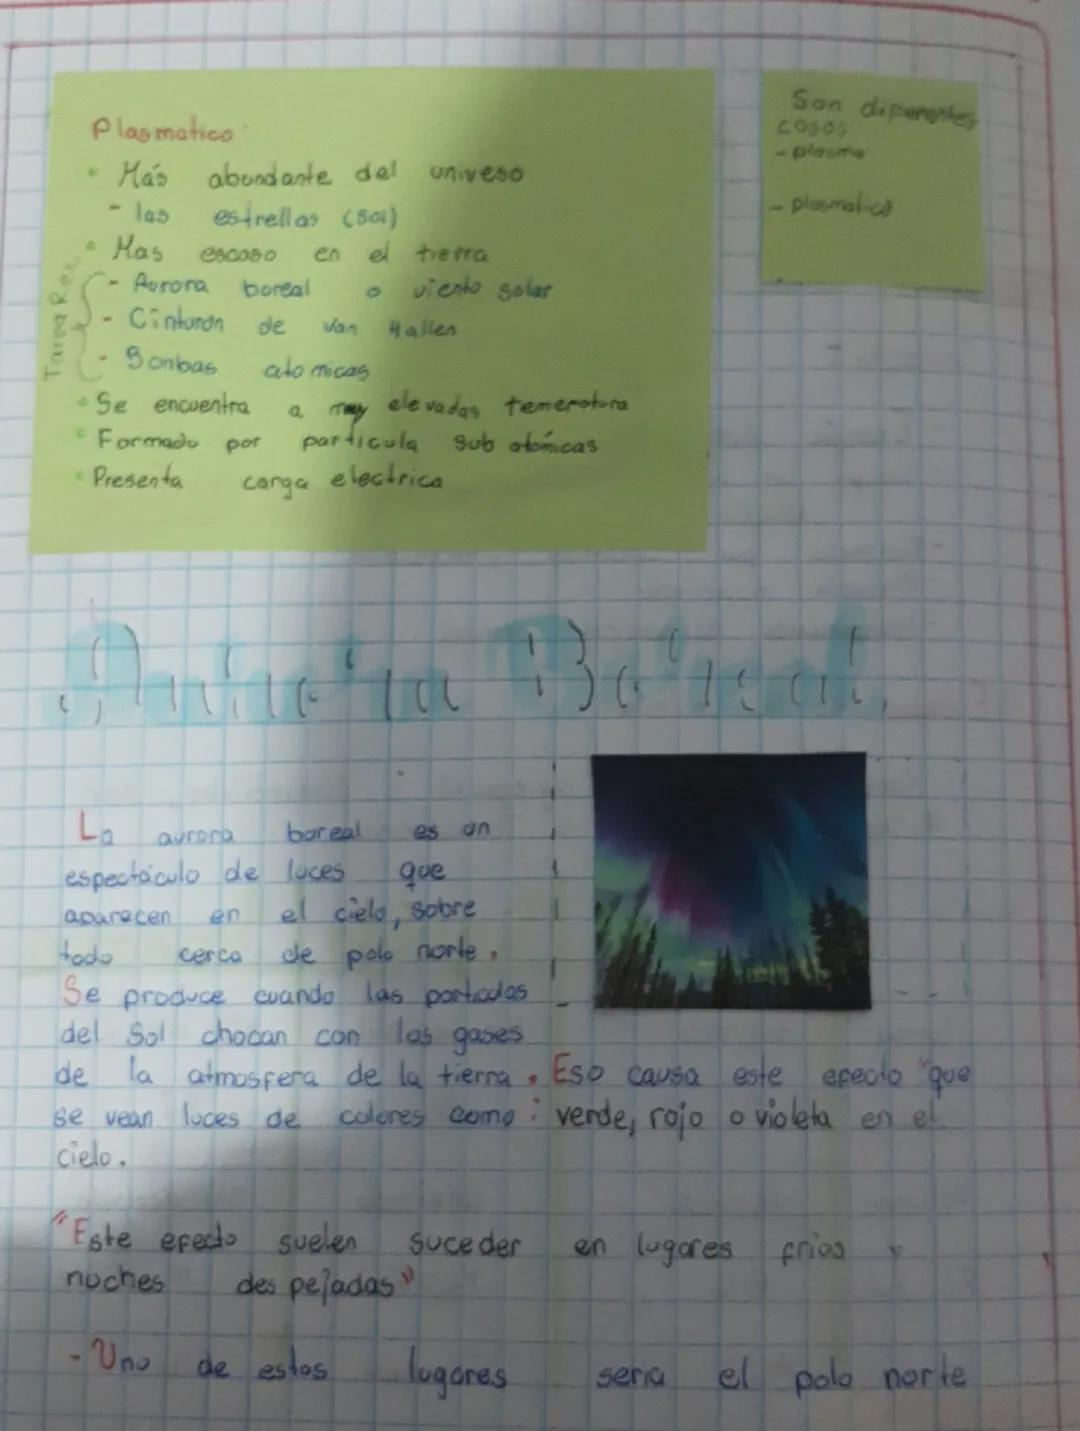 Plasmatico:
• Más abundante del univeso
- las estrellas (Sol)
• Mas escaso en el tierra
- Aurora boreal o viento solar
- Cinturon de Van Hallen
- Bonbas atomicas
Tarea
• Se encuentra a muy elevadas temeratura
• Formado por particula sub atomicas
• Presenta carga electrica
Son diferentes
cosas
- plasma
- plasmatico
Aurora Boreal
La aurora boreal es un
espectáculo de luces que
aparecen en el cielo, sobre
todo cerca de polo norte.
Se produce cuando las particulas
del Sol chocan con los gases
de la atmosfera de la tierra. Eso causa este efecto "que
se vean luces de colores como: verde, rojo o violeta en el
cielo.
"Este efecto suelen suceder en lugares frios y
noches despejadas"
- Uno de estos lugares seria el polo norte